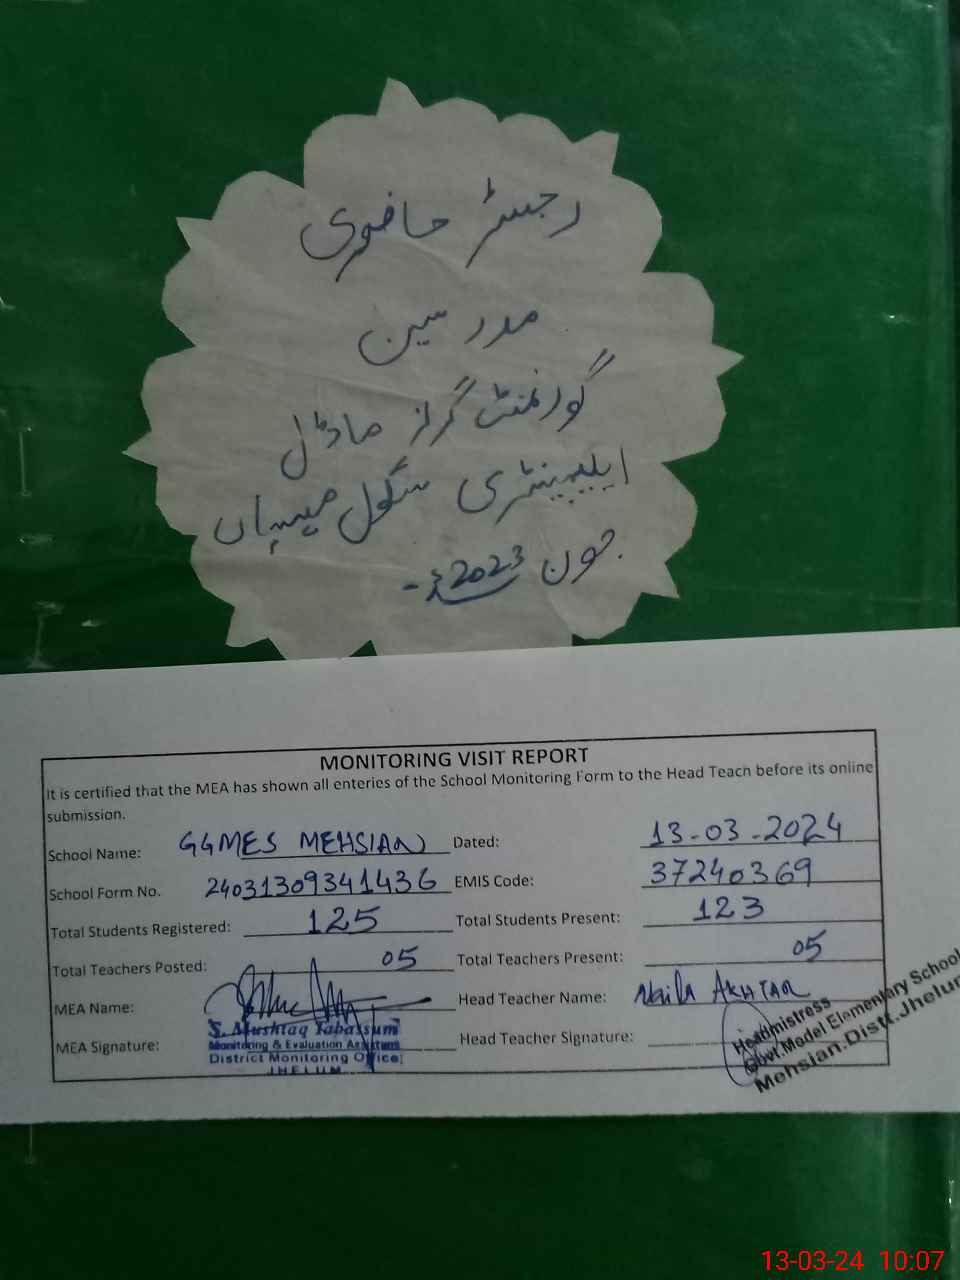 رجسٹر حاضری
مدرسین
گورنمنٹ گرلز ماڈل
ایلیمینٹری سکول میہساں
جون 2023ء-
MONITORING VISIT REPORT
It is certified that the MEA has shown all enteries of the School Monitoring Form to the Head Teach before its online
submission.
School Name: GGMES MEHSIAN Dated: 13-03-2024
School Form No. 24031309341436 EMIS Code: 37240369
Total Students Registered: 125 Total Students Present: 123
Total Teachers Posted: 05 Total Teachers Present: 05
MEA Name: Head Teacher Name: Naila AKHTAR
MEA Signature: Head Teacher Signature:
S. Mushtaq Tabassum
Monitoring & Evaluation Assistant
District Monitoring Office
JHELUM
Headmistress
Govt.Model Elementary School
Mehsian.Distt.Jhelum
13-03-24 10:07